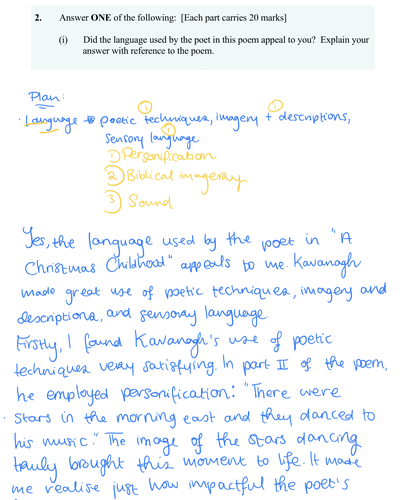 2. Answer ONE of the following: [Each part carries 20 marks]
(i) Did the language used by the poet in this poem appeal to you? Explain your
answer with reference to the poem.
Plan:
· Language → poetic techniques, imagery + descriptions,
sensory language
1 Personification
2 Biblical imagery
3 Sound
Yes, the language used by the poet in "A
Christmas Childhood" appeals to me. Kavanagh
made great use of poetic techniques, imagery and
descriptions, and sensory language.
Firstly, I found Kavanagh's use of poetic
techniques very satisfying. In part II of the poem,
he employed personification: "There were
stars in the morning east and they danced to
his music." The image of the stars dancing
truly brought this moment to life. It made
me realise just how impactful the poet's